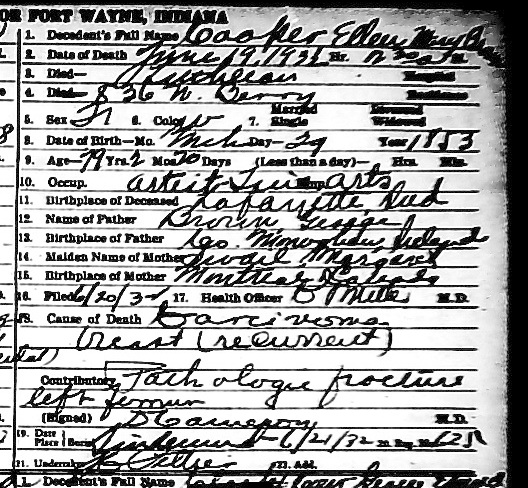 OR FORT WAYNE, INDIANA
1. Decedent's Full Name Cooper Ellen Mary Brown
2. Date of Death June 19, 1932 Hr. M.
3. Died— Lutheran Hospital
4. Died— 836 W. Berry Residence
5. Sex F 6. Color W 7. Married Single Divorced Widowed
8. Date of Birth—Mo. Mch Day—29 Year 1853
9. Age—79 Yrs. 2 Mo. 20 Days (Less than a day)— Hrs. Min.
10. Occup. artist Fine arts
11. Birthplace of Deceased Lafayette Ind
12. Name of Father Brown George
13. Birthplace of Father Co. Monaghan Ireland
14. Maiden Name of Mother Margaret
15. Birthplace of Mother Montreal Canada
16. Filed 6/20/32 17. Health Officer M.D.
18. Cause of Death Carcinoma
breast (recurrent)
Contributory Pathologic fracture
left femur
(Signed) D Cameron M.D.
19. Date Place Burial Lindenwood 6/21/32
21. Undertaker 22. Add.
1. Decedent's Full Name